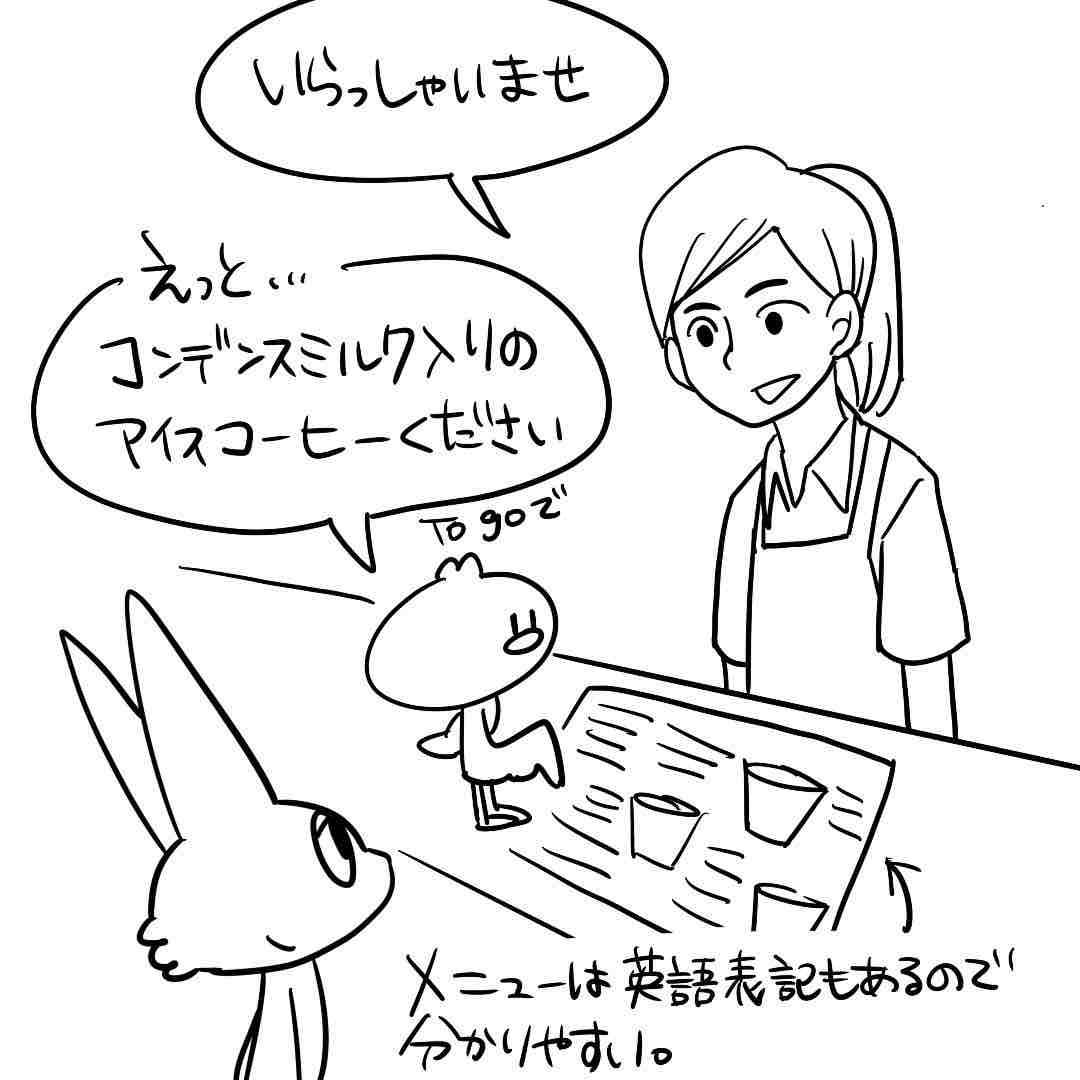 いらっしゃいませ
えっと…
コンデンスミルク入りの
アイスコーヒーください
To goで
メニューは英語表記もあるので
分かりやすい。